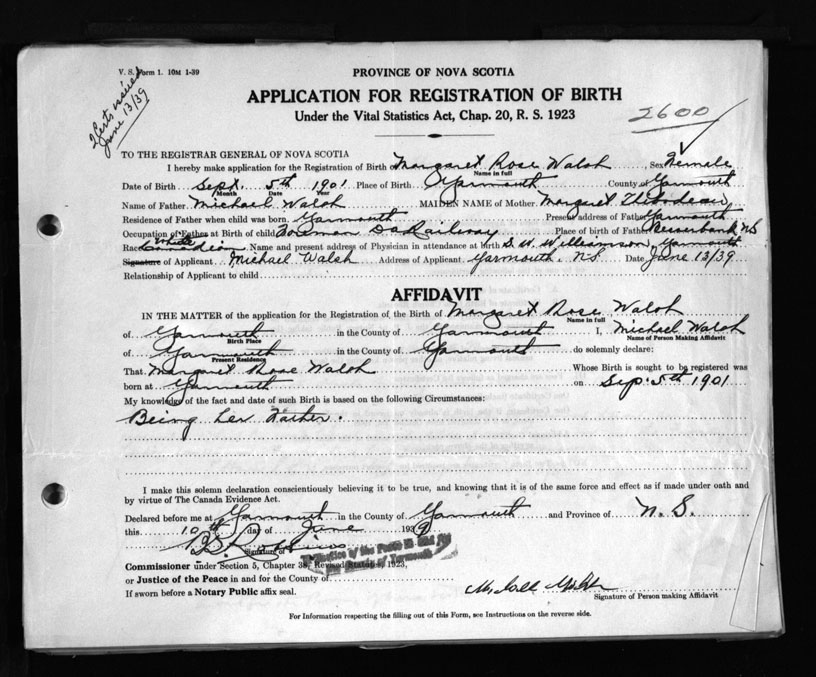 V. S. Form 1. 10M 1-39
2 Certs issued
June 13/39
PROVINCE OF NOVA SCOTIA
APPLICATION FOR REGISTRATION OF BIRTH
Under the Vital Statistics Act, Chap. 20, R. S. 1923
2600
TO THE REGISTRAR GENERAL OF NOVA SCOTIA
I hereby make application for the Registration of Birth of Margaret Rose Walsh Sex Female
Name in full
Date of Birth Sept. 5th 1901 Place of Birth Yarmouth County of Yarmouth
Month Date Year
Name of Father Michael Walsh MAIDEN NAME of Mother Margaret Thibodeau
Residence of Father when child was born. Yarmouth Present address of Father Yarmouth
Occupation of Father at Birth of child Foreman Railway Place of birth of Father NS
White
Race Canadian Name and present address of Physician in attendance at birth D. W. Williamson, Yarmouth
Signature of Applicant Michael Walsh Address of Applicant Yarmouth N.S. Date June 13/39
Relationship of Applicant to child
AFFIDAVIT
IN THE MATTER of the application for the Registration of the Birth of Margaret Rose Walsh
Name in full
of Yarmouth in the County of Yarmouth I, Michael Walsh
Birth Place Name of Person Making Affidavit
of Yarmouth in the County of Yarmouth do solemnly declare:
Present Residence
That Margaret Rose Walsh Whose Birth is sought to be registered was
born at Yarmouth on Sep. 5th 1901
My knowledge of the fact and date of such Birth is based on the following Circumstances:
Being her Father.
I make this solemn declaration conscientiously believing it to be true, and knowing that it is of the same force and effect as if made under oath and
by virtue of The Canada Evidence Act.
Declared before me at Yarmouth in the County of Yarmouth and Province of N. S.
this 10th day of June 1939
Signature of
Justice of the Peace in and for
Commissioner under Section 5, Chapter 38, Revised Statutes, 1923,
or Justice of the Peace in and for the County of
If sworn before a Notary Public affix seal.
Michael Walsh
Signature of Person making Affidavit
For Information respecting the filling out of this Form, see Instructions on the reverse side.